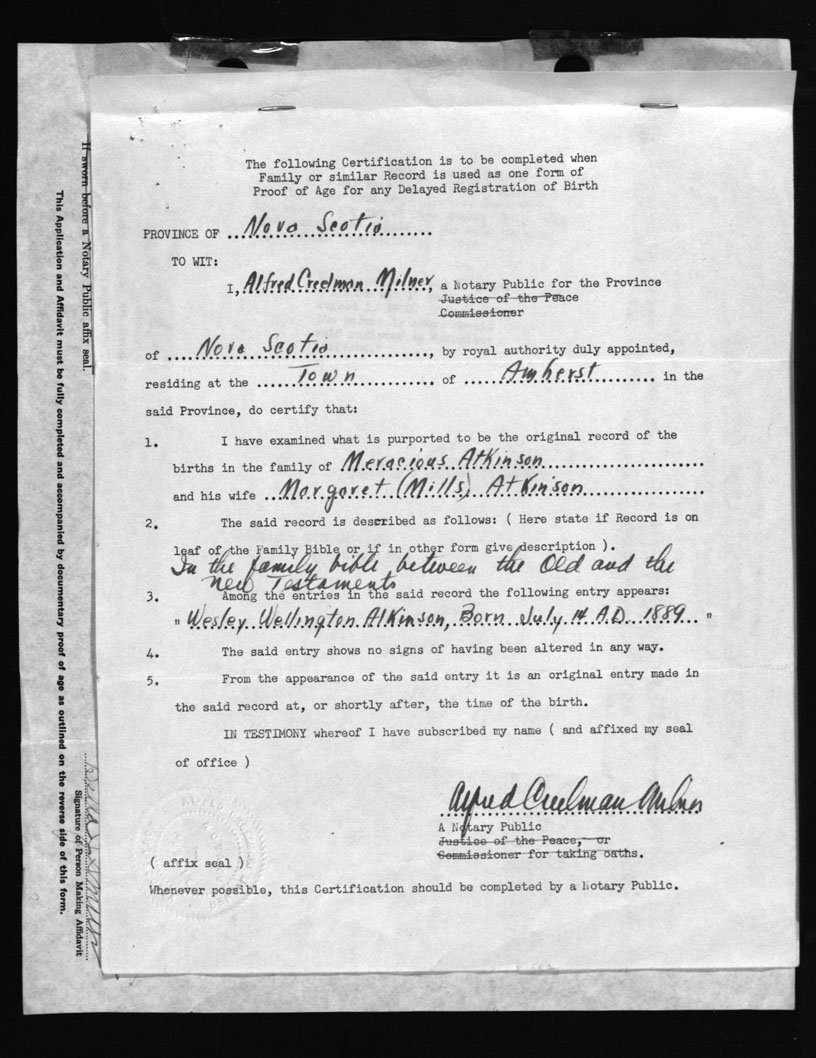 The following Certification is to be completed when
Family or similar Record is used as one form of
Proof of Age for any Delayed Registration of Birth
PROVINCE OF ...Nova Scotia.......
TO WIT:
I, Alfred Creelman Milner, a Notary Public for the Province
Justice of the Peace
Commissioner
of ....Nova Scotia..............., by royal authority duly appointed,
residing at the ......Town........... of .....Amherst......... in the
said Province, do certify that:
1. I have examined what is purported to be the original record of the
births in the family of Meracious Atkinson.....................
and his wife ..Margaret (Mills) Atkinson................
2. The said record is described as follows: ( Here state if Record is on
leaf of the Family Bible or if in other form give description ).
In the family bible between the Old and the
New Testaments
3. Among the entries in the said record the following entry appears:
"Wesley Wellington Atkinson, Born July 14 A.D. 1889 "
4. The said entry shows no signs of having been altered in any way.
5. From the appearance of the said entry it is an original entry made in
the said record at, or shortly after, the time of the birth.
IN TESTIMONY whereof I have subscribed my name ( and affixed my seal
of office )
Alfred Creelman Milner
A Notary Public
Justice of the Peace, or
Commissioner for taking oaths.
( affix seal )
Whenever possible, this Certification should be completed by a Notary Public.
If sworn before a Notary Public affix seal.
This Application and Affidavit must be fully completed and accompanied by documentary proof of age as outlined on the reverse side of this form.
Signature of Person Making Affidavit